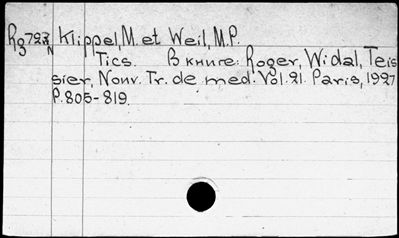 Rg 723 Klippel, M. et Weil, M.P.
N Tics. В книге: Roger, Widal, Teis
sier, Nonv. Tr. de med. Vol. 21. Paris, 1927
P. 805-819.